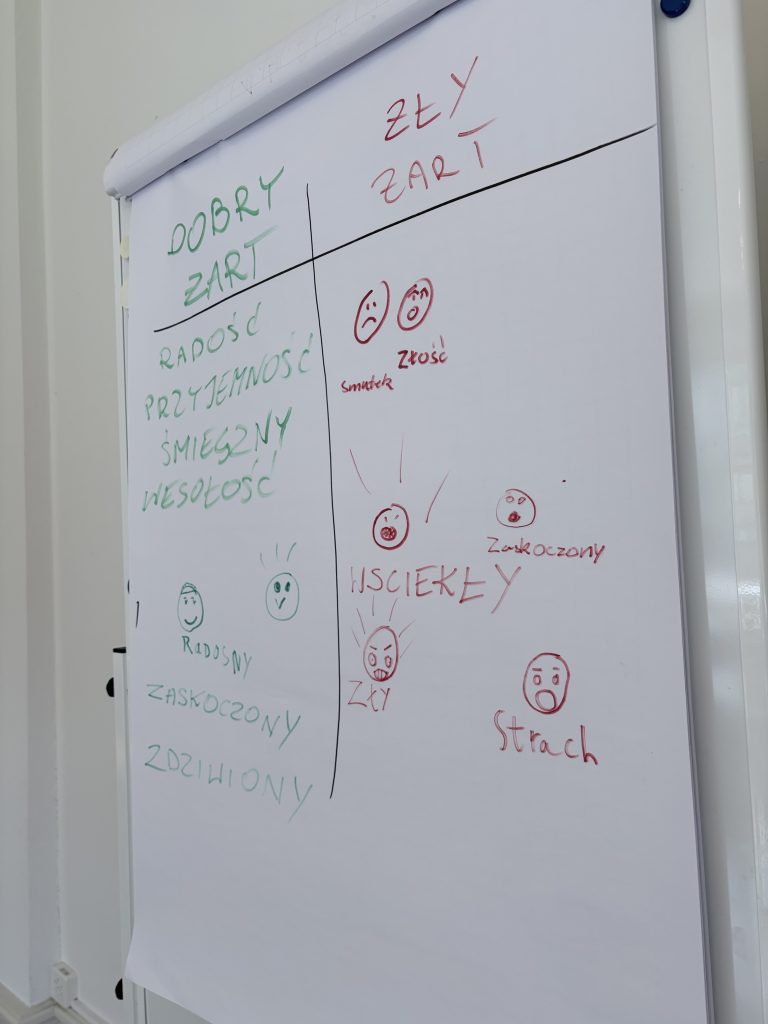 DOBRY
ZART
RADOŚĆ
PRZYJEMNOŚĆ
ŚMIESZNY
WESOŁOŚĆ
RADOSNY
ZASKOCZONY
ZDZIWIONY
ZŁY
ZART
smutek
Złość
Zaskoczony
WSCIEKŁY
ZŁY
Strach